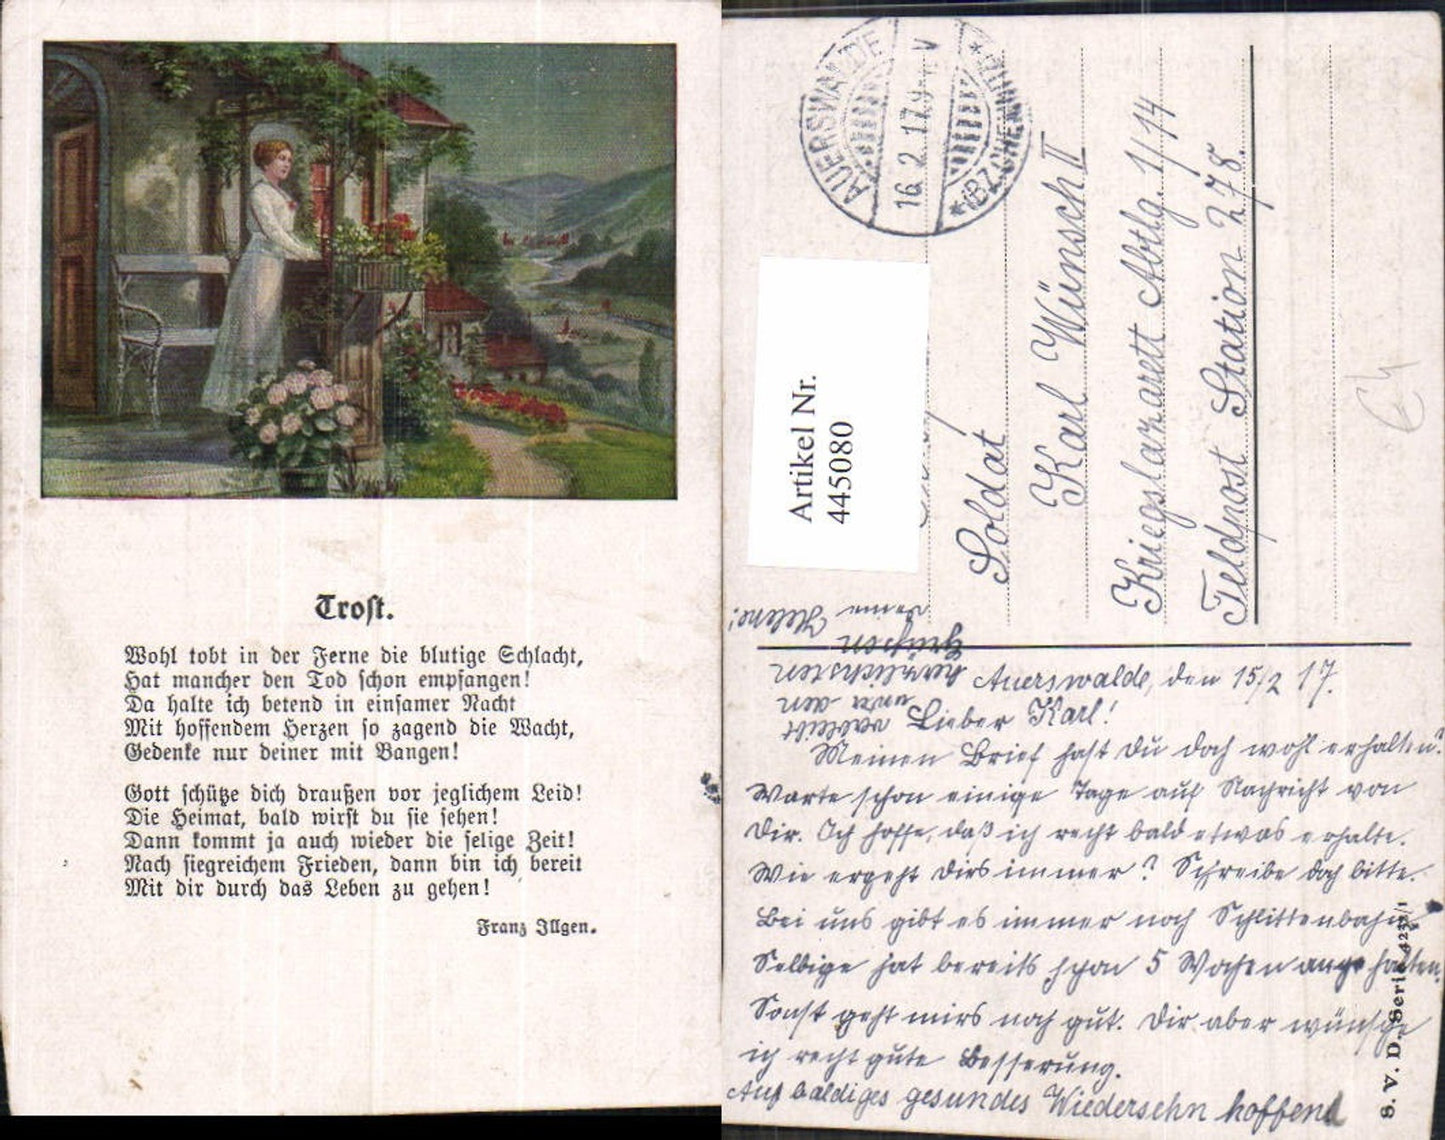 Trost.
Wohl tobt in der Ferne die blutige Schlacht,
Hat mancher den Tod schon empfangen!
Da halte ich betend in einsamer Nacht
Mit hoffendem Herzen so zagend die Wacht,
Gedenke nur deiner mit Bangen!
Gott schütze dich draußen vor jeglichem Leid!
Die Heimat, bald wirst du sie sehen!
Dann kommt ja auch wieder die selige Zeit!
Nach siegreichem Frieden, dann bin ich bereit
Mit dir durch das Leben zu gehen!
Franz Illgen.
AUERSWALDE
16.2.17.9-V
*(BZ.CHEMNITZ)*
Artikel Nr.
445080
Soldat
Karl Wünsch II
Kriegslazarett Abtlg. 1/14
Feldpost Station 278.
Auerswalde, den 15/2 17.
Lieber Karl!
Meinen Brief hast Du doch wohl erhalten?
Warte schon einige Tage auf Nachricht von
Dir. Ich hoffe, daß ich recht bald etwas erhalte.
Wie ergeht Dirs immer? Schreibe doch bitte.
Bei uns gibt es immer noch Schlittenbahn
Selbige hat bereits schon 5 Wochen angehalten.
Sonst geht mirs noch gut. Dir aber wünsche
ich recht gute Besserung.
Auf baldiges gesundes Wiedersehn hoffend
verbleibt
unter den
herzlichsten
Grüßen
Deine Helene!
S. V. D. Serie 4233/1